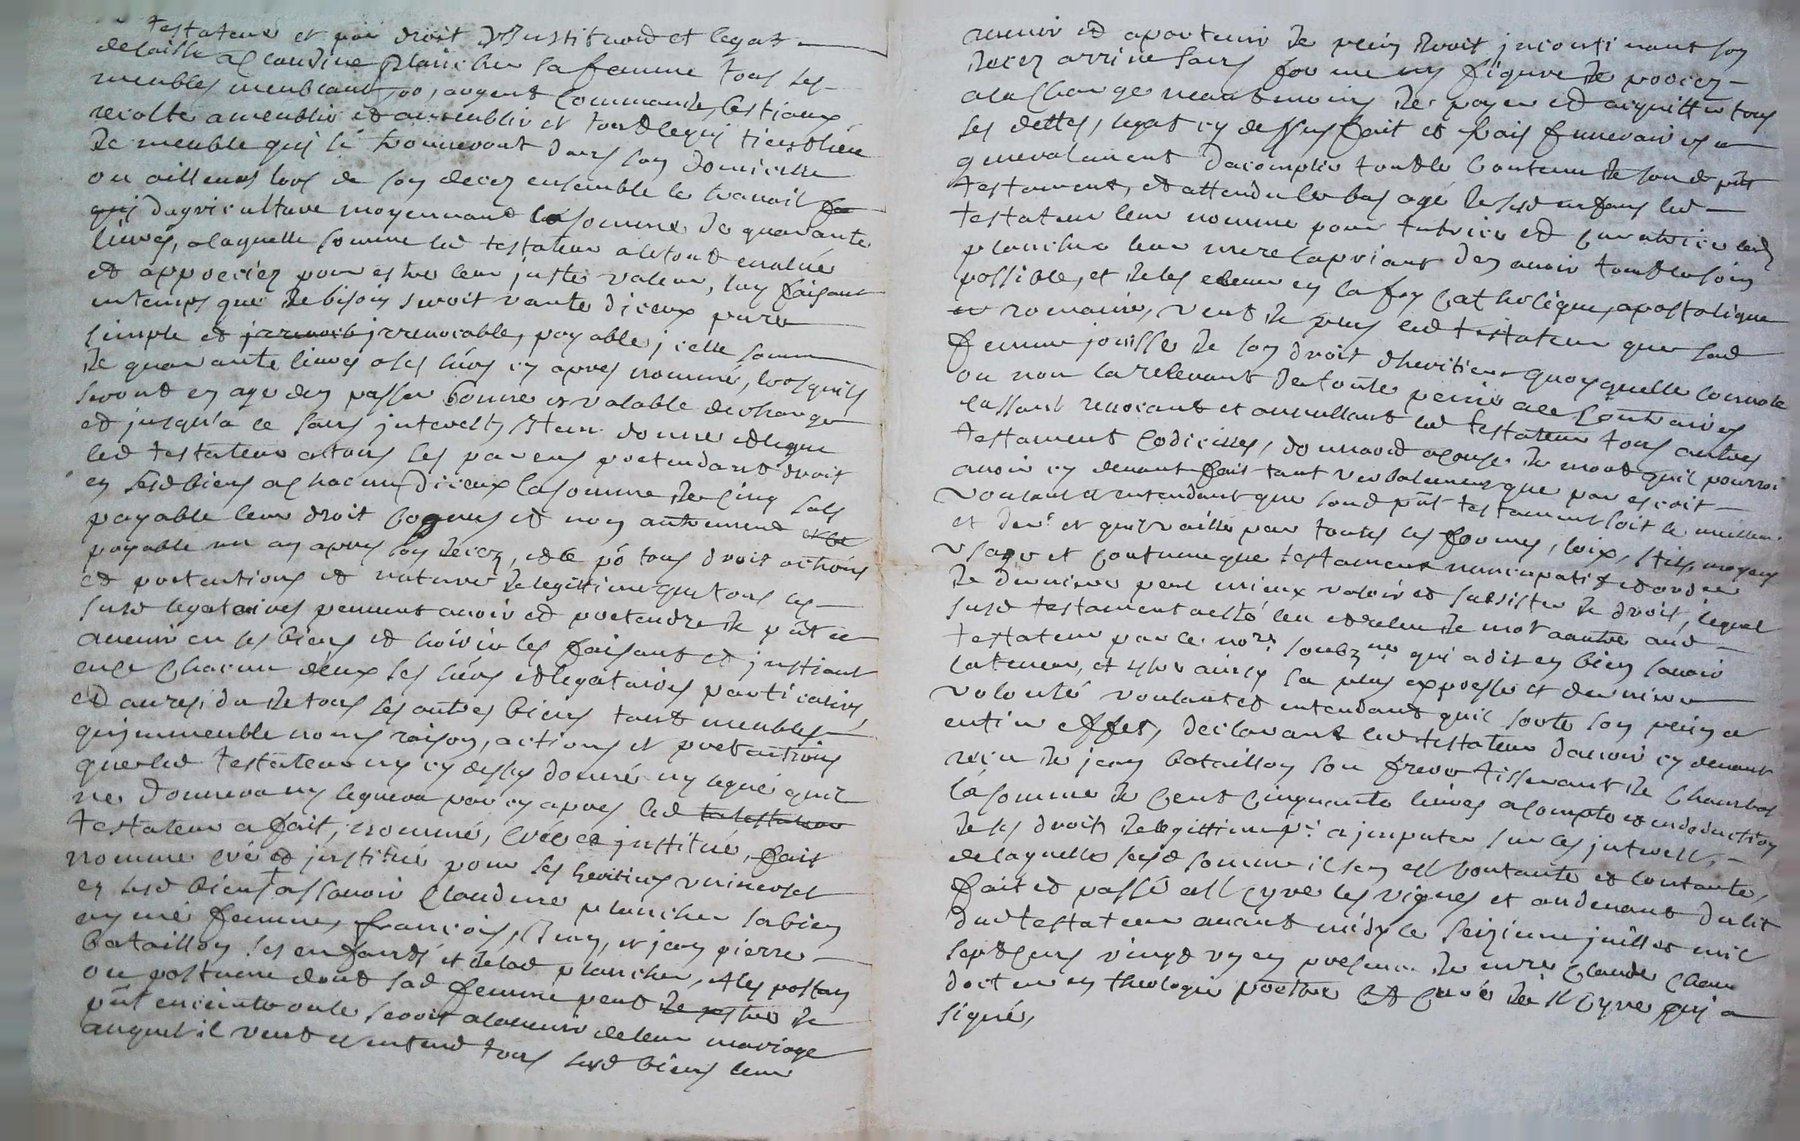 testateur et par droit d'institution et legat
delaisse a Claudine plancher sa femme tous ses
meubles meublant, or, argent commande, bestiaux
recolte ameublir et assemblir et tout le qui tient lieu
de meuble qui se trouveront dans son domicille
ou ailleurs lors de son decez ensemble le travail
qui d'agriculture moyennant la somme de quarante
livres, a laquelle somme led testateur a le tout evalué
et apprecier pour estre leur juste valeur, luy faisant
en temps que de bisoin seroit vante d'iceux pure
simple et irrevocable, payable icelle somme
de quarante livres a ses héors cy apres nommé, lorsquils
seront en age d'en passer bonne et valable decharge
et jusqu'a ce sans interestz Item donne et legue
led testateur a tous les parens pretendant droit
en sesd biens a chacun d'iceux la somme de cinq sols
payable leur droit cogneus et non autrement
payable un an apres son decez, et ce po tous droit actions
et pretentions et nature de legittime que tous ces
susd legataires peuvent avoir et pretendre de pñt et
avenir en ses biens et hoirie les faisant et instiant
en ce chacun deux ses héors et legataires particuliers,
et au residu de tous ses autres biens tant meubles
qu'immeuble noms raison, actions et pretentions
que led testateur ny cy dessus donné ny legué qu'il
ne donnera ny leguera par cy apres led
testateur a fait, nommé, creé et institué, fait
nomme creé et institue pour ses heritiers universel
en sesd biens assavoir Claudine plancher sa bien
aymé femme, françois, et jean pierre
bataillon ses enfants et de lad plancher, et les postum
ou postume dont sad femme peut de estre de
pñt enceinte ou le seroit a l'avenir de leur mariage
auquel il veut et entend tous sesd biens leur
avenir et apartenir de plein droit incontinant son
decez arrivé sans forme ny figure de procez
a la charge neantmoins de payer et acquitter tous
ses dettes, legat cy dessus fait et frais funeraires et
generalement d'acomplir tout le contenu de sond pñt
testament, et attendu le bas agé de sesd enfans led
testateur leur nomme pour tutrice et curatrice lad
plancher leur mere la priant d'en avoir tout le soin
possible, et de les elever en la foy catholique, apostolique
et romaine, veut de plus led testateur que sad
femme jouisse de son droit d'heritiere quoyquelle convole
ou non la relevant de toute peine a ce contraires
cassant revocant et annullant led testateur tous autres
testament codicilles, donnaond a cause de mort quil pourroi
avoir cy devant fait tant verbalement que par escrit
voulant et entendant que sond pñt testament soit le meilleur
et der et qu'il vaille par toutes les formes, loix, stils, moyens
usage et coutume que testament nuncupatif et ordre
de derniere peut mieux valoir et subsister de droit, lequel
susd testament a esté leu et releu de mot a autre aud
testateur par le nore soubzne qui a dit en bien scavoir
la teneur, et estre ainsy sa plus expresse et derniere
volonté voulant et entendant quil sorte son plein et
entier effet, declarant led testateur d'avoir cy devant
reçu de jean batailloy son frere tisserant de Chambost
la somme de cent cinquante livres a compte et en deduction
de ses droits de legittime a imputer sur les interestz,
de laquelle susd somme il s'en est contante et contante,
fait et passé a St Cyre les vignes et au devant du lit
dud testateur avant midy le seizieme juillet mil
sept cens vingt un en presence de mre Claude
docteur en theologie prestre et curé de St Cyre qui a
signé,